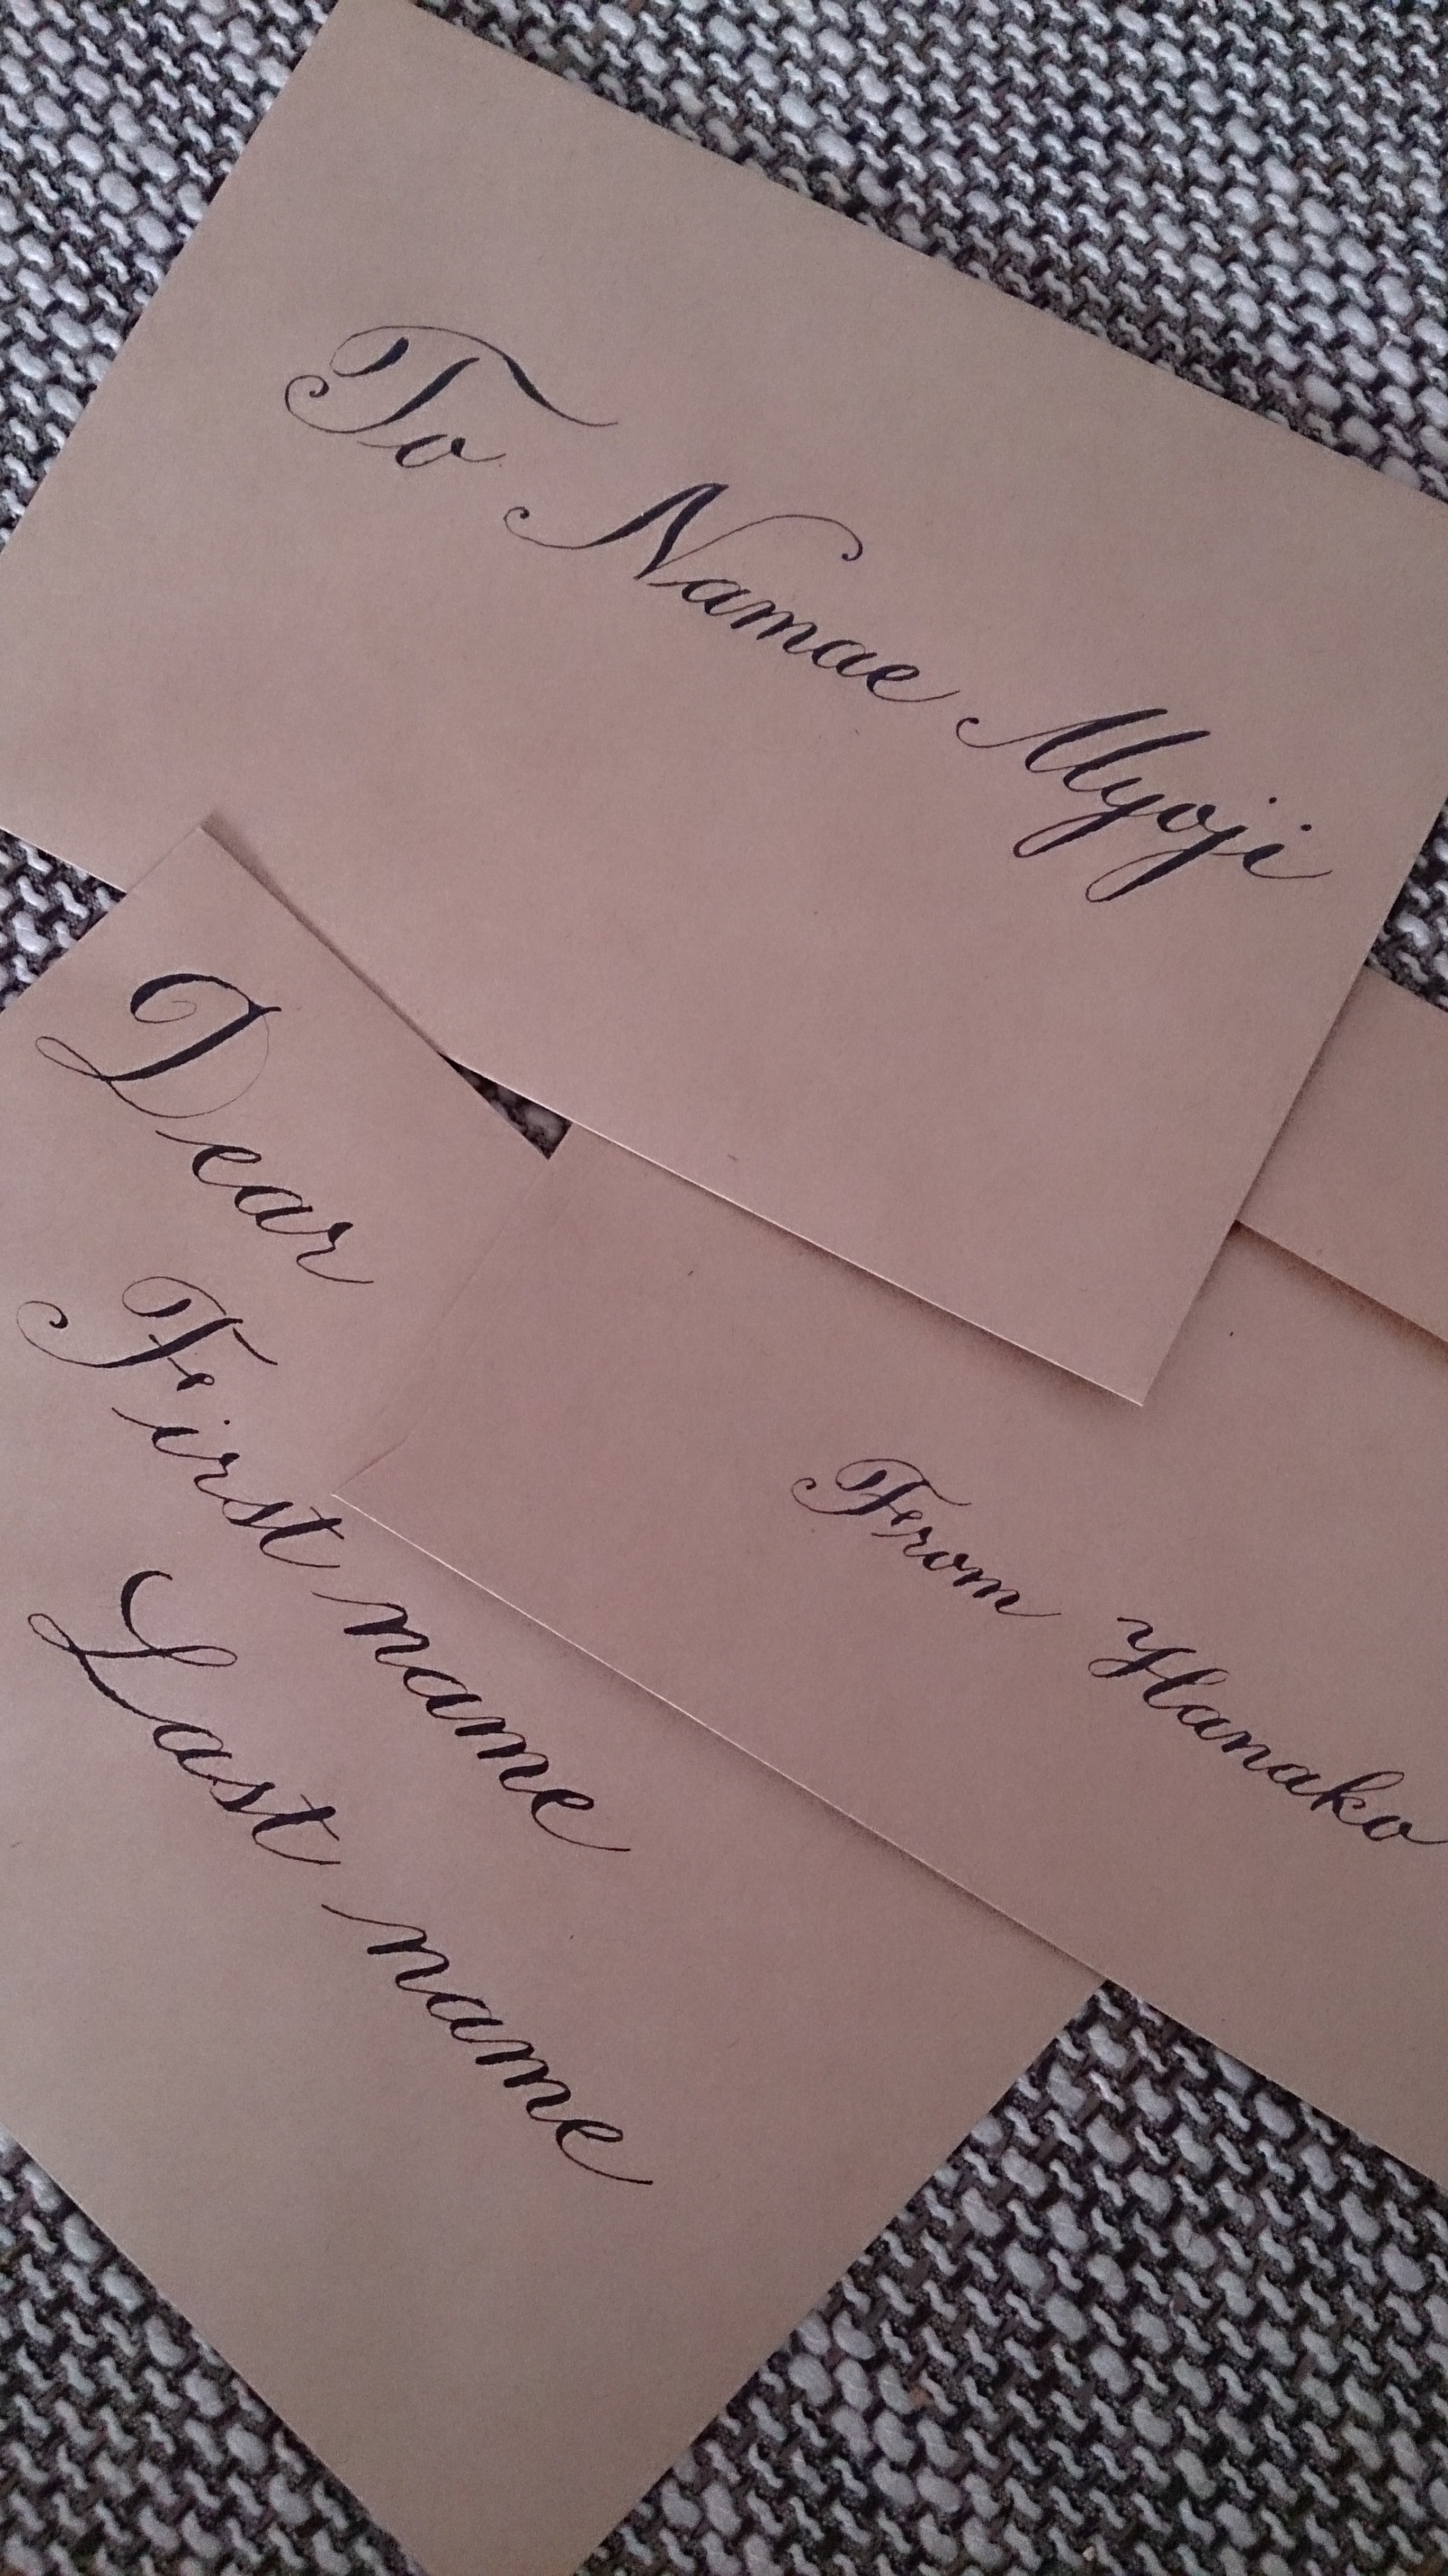 To Namae Myoji
Dear
First name
Last name
From Hanako